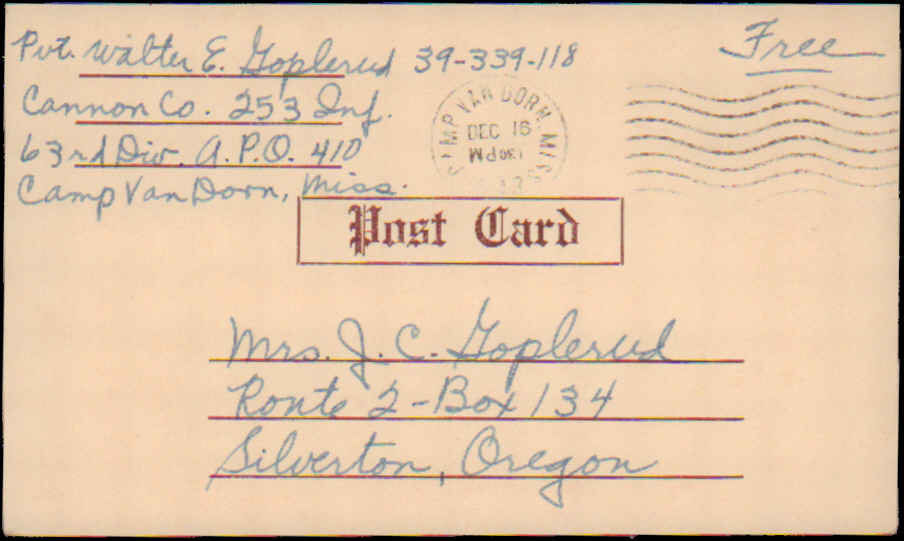 Pvt. Walter E. Goplerud 39-339-118
Free
Cannon Co. 253 Inf.
63rd Div. A.P.O. 410
Camp Van Dorn, Miss.
CAMP VAN DORN, MISS.
DEC 16
1 30 PM
Post Card
Mrs. J. C. Goplerud
Route 2 - Box 134
Silverton, Oregon